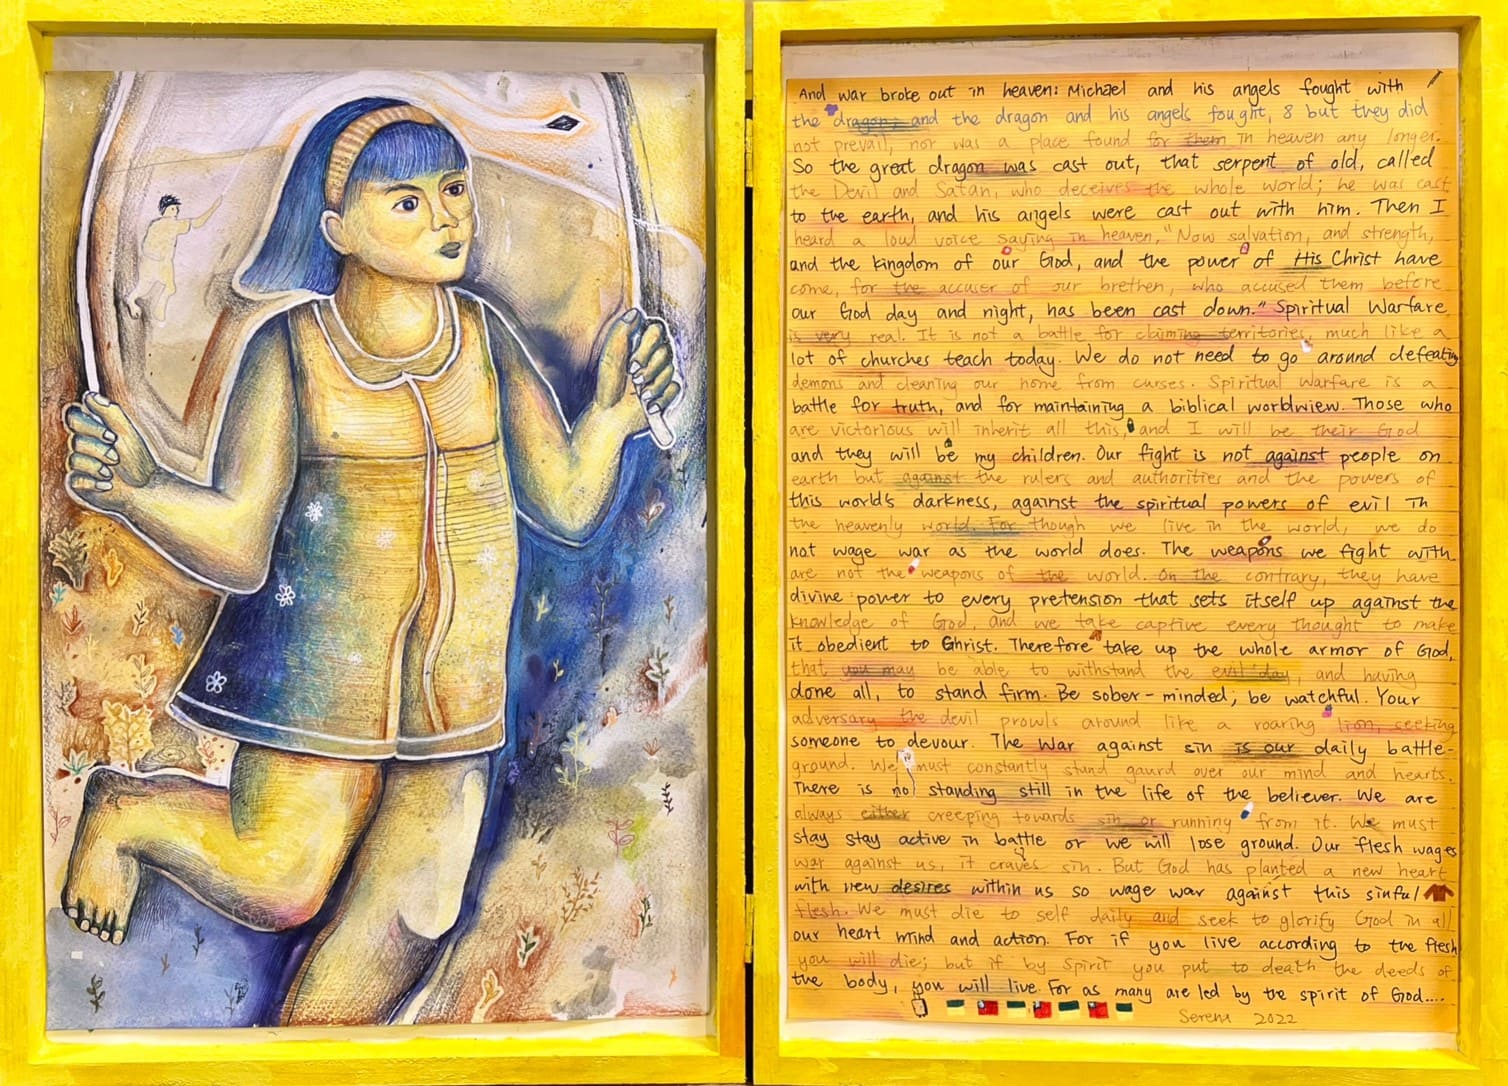 And war broke out in heaven: Michael and his angels fought with
the dragon; and the dragon and his angels fought, 8 but they did
not prevail, nor was a place found for them in heaven any longer.
So the great dragon was cast out, that serpent of old, called
the Devil and Satan, who deceives the whole world; he was cast
to the earth, and his angels were cast out with him. Then I
heard a loud voice saying in heaven, "Now salvation, and strength,
and the kingdom of our God, and the power of His Christ have
come, for the accuser of our brethen, who accused them before
our God day and night, has been cast down." Spiritual Warfare
is very real. It is not a battle for claiming territories, much like a
lot of churches teach today. We do not need to go around defeating
demons and cleaning our home from curses. Spiritual Warfare is a
battle for truth, and for maintaining a biblical worldwiew. Those who
are victorious will inherit all this, and I will be their God
and they will be my children. Our fight is not against people on
earth but against the rulers and authorities and the powers of
this world's darkness, against the spiritual powers of evil in
the heavenly world. For though we live in the world, we do
not wage war as the world does. The weapons we fight with
are not the weapons of the world. On the contrary, they have
divine power to every pretension that sets itself up against the
knowledge of God, and we take captive every thought to make
it obedient to Christ. Therefore take up the whole armor of God,
that you may be able to withstand the evil day, and having
done all, to stand firm. Be sober-minded; be watchful. Your
adversary the devil prowls around like a roaring lion, seeking
someone to devour. The War against sin is our daily battle-
ground. We must constantly stand gaurd over our mind and hearts.
There is no standing still in the life of the believer. We are
always either creeping towards sin or running from it. We must
stay stay active in battle or we will lose ground. Our flesh wages
war against us, it craves sin. But God has planted a new heart
with new desires within us so wage war against this sinful
flesh. We must die to self daily and seek to glorify God in all
our heart mind and action. For if you live according to the flesh
you will die; but if by Spirit you put to death the deeds of
the body, you will live. For as many are led by the spirit of God....
Serena 2022